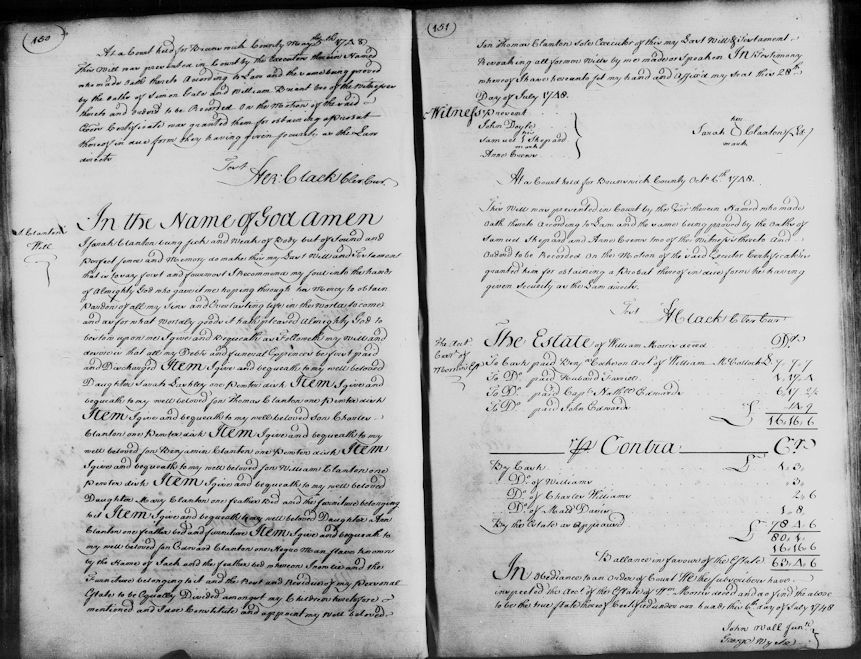 150
At a Court held for Brunswick County May 1748
This Will was presented in Court by the Executors therein Named
who made Oath thereto According to Law and the same being proved
by the Oaths of Simon Gale and William Brent two of the Witnesses
thereto and Ordered to be Recorded On the Motion of the said
Certificate was granted them for obtaining a Probat
thereof in due form they having given security as the Law
directs
Test
Ster: Clack Cler Cur.
S Clanton's
Will
In the Name of God Amen
I Sarah Clanton being sick and Weak of Body but of Sound and
Perfect Sence and Memory do make this my Last Will and Testament
that is to say first and foremost I Recommend my soul into the hands
of Almighty God who gave it me hoping through his Mercy to obtain
Pardon of all my Sins and Everlasting life in the World to come
and as for what Worldly goods it hath pleased Almighty God to
bestow upon me I give and Bequeath as Followeth my Will and
desire is that all my Debts and funeral Expences be first paid
and Discharged Item I give and bequeath to my well beloved
Daughter Sarah Lashley one Pewter dish Item I give and
bequeath to my well beloved son Thomas Clanton one Pewter dish
Item I give and bequeath to my well beloved Son Charles
Clanton one Pewter dish Item I give and bequeath to my
well beloved Son Benjamin Clanton one Pewter dish Item
I give and bequeath to my well beloved son William Clanton one
Pewter dish Item I give and bequeath to my well beloved
Daughter Mary Clanton one feather Bed and the furniture belonging
to it Item I give and bequeath to my well beloved Daughter Ann
Clanton one feather bed and furniture Item I give and bequeath to
my well beloved son Edward Clanton one Negro Man slave known
by the Name of Jack and the feather bed whereon I now lie and the
Furniture belonging to it and the Rest and Residue of my Personal
Estate to be Equally Divided amongst my Children heretofore
mentioned and I doe Constitute and appoint my Well beloved
151
Son Thomas Clanton Sole Executor of this my Last Will & Testament
Revoaking all former Wills by me made or Spoken In Testimony
whereof I have hereunto set my hand and Affix'd my Seal this 28th
Day of July 1748.
Witness Present
John Doyle
Samuel Shepard
his mark
Anne Crews
her
Sarah Clanton
mark
At a Court held for Brunswick County Octr 6th 1748.
This Will was presented in Court by the Exor therein Named who made
Oath thereto According to Law and the same being proved by the Oaths of
Samuel Shepard and Anne Crews two of the Witnesses thereto And
Ordered to be Recorded On the Motion of the said Executor Certificate is
granted him for obtaining a Probat thereof in due form he having
given Security as the Law directs.
Test
S: Clack Cler Cur
The Estate of William Morris decd Dr.
To Cash paid Benja Cocheron Acct. of William McCollock £ 7.7.7
To Do. paid Husband
To Do. paid Capt. Nathl Edwards
To Do paid John Edwards
£ 16.16.6
Pr Contra Cr.
By Cash £ 1.3.
Do. of Williams
Do. of Charles Williams 2.6
Do. of Davis 1.8.
By the Estate as Appraised £ 78.4.6
80.1.
16.16.6
Ballance in favour of the Estate 63.4.6
In Obediance to an Order of Court We the Subscribers have
inspected the Acct. of the Estate of Wm. Morris decd and do find the above
to be the true state thereof Certified under our hands this 6th day of July 1748
John Wall Junr.
George